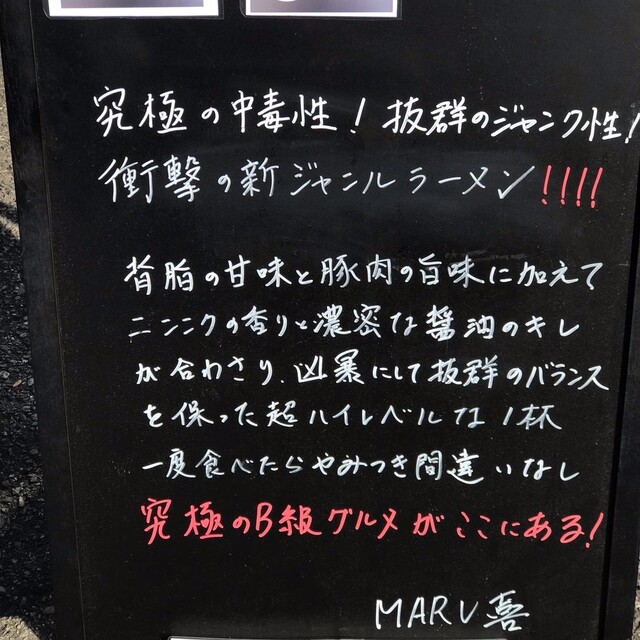 究極の中毒性！抜群のジャンク性！
衝撃の新ジャンルラーメン!!!!
背脂の甘味と豚肉の旨味に加えて
ニンニクの香りと濃密な醤油のキレ
が合わさり、凶暴にして抜群のバランス
を保った超ハイレベルな1杯
一度食べたらやみつき間違いなし
究極のB級グルメがここにある！
MARU喜